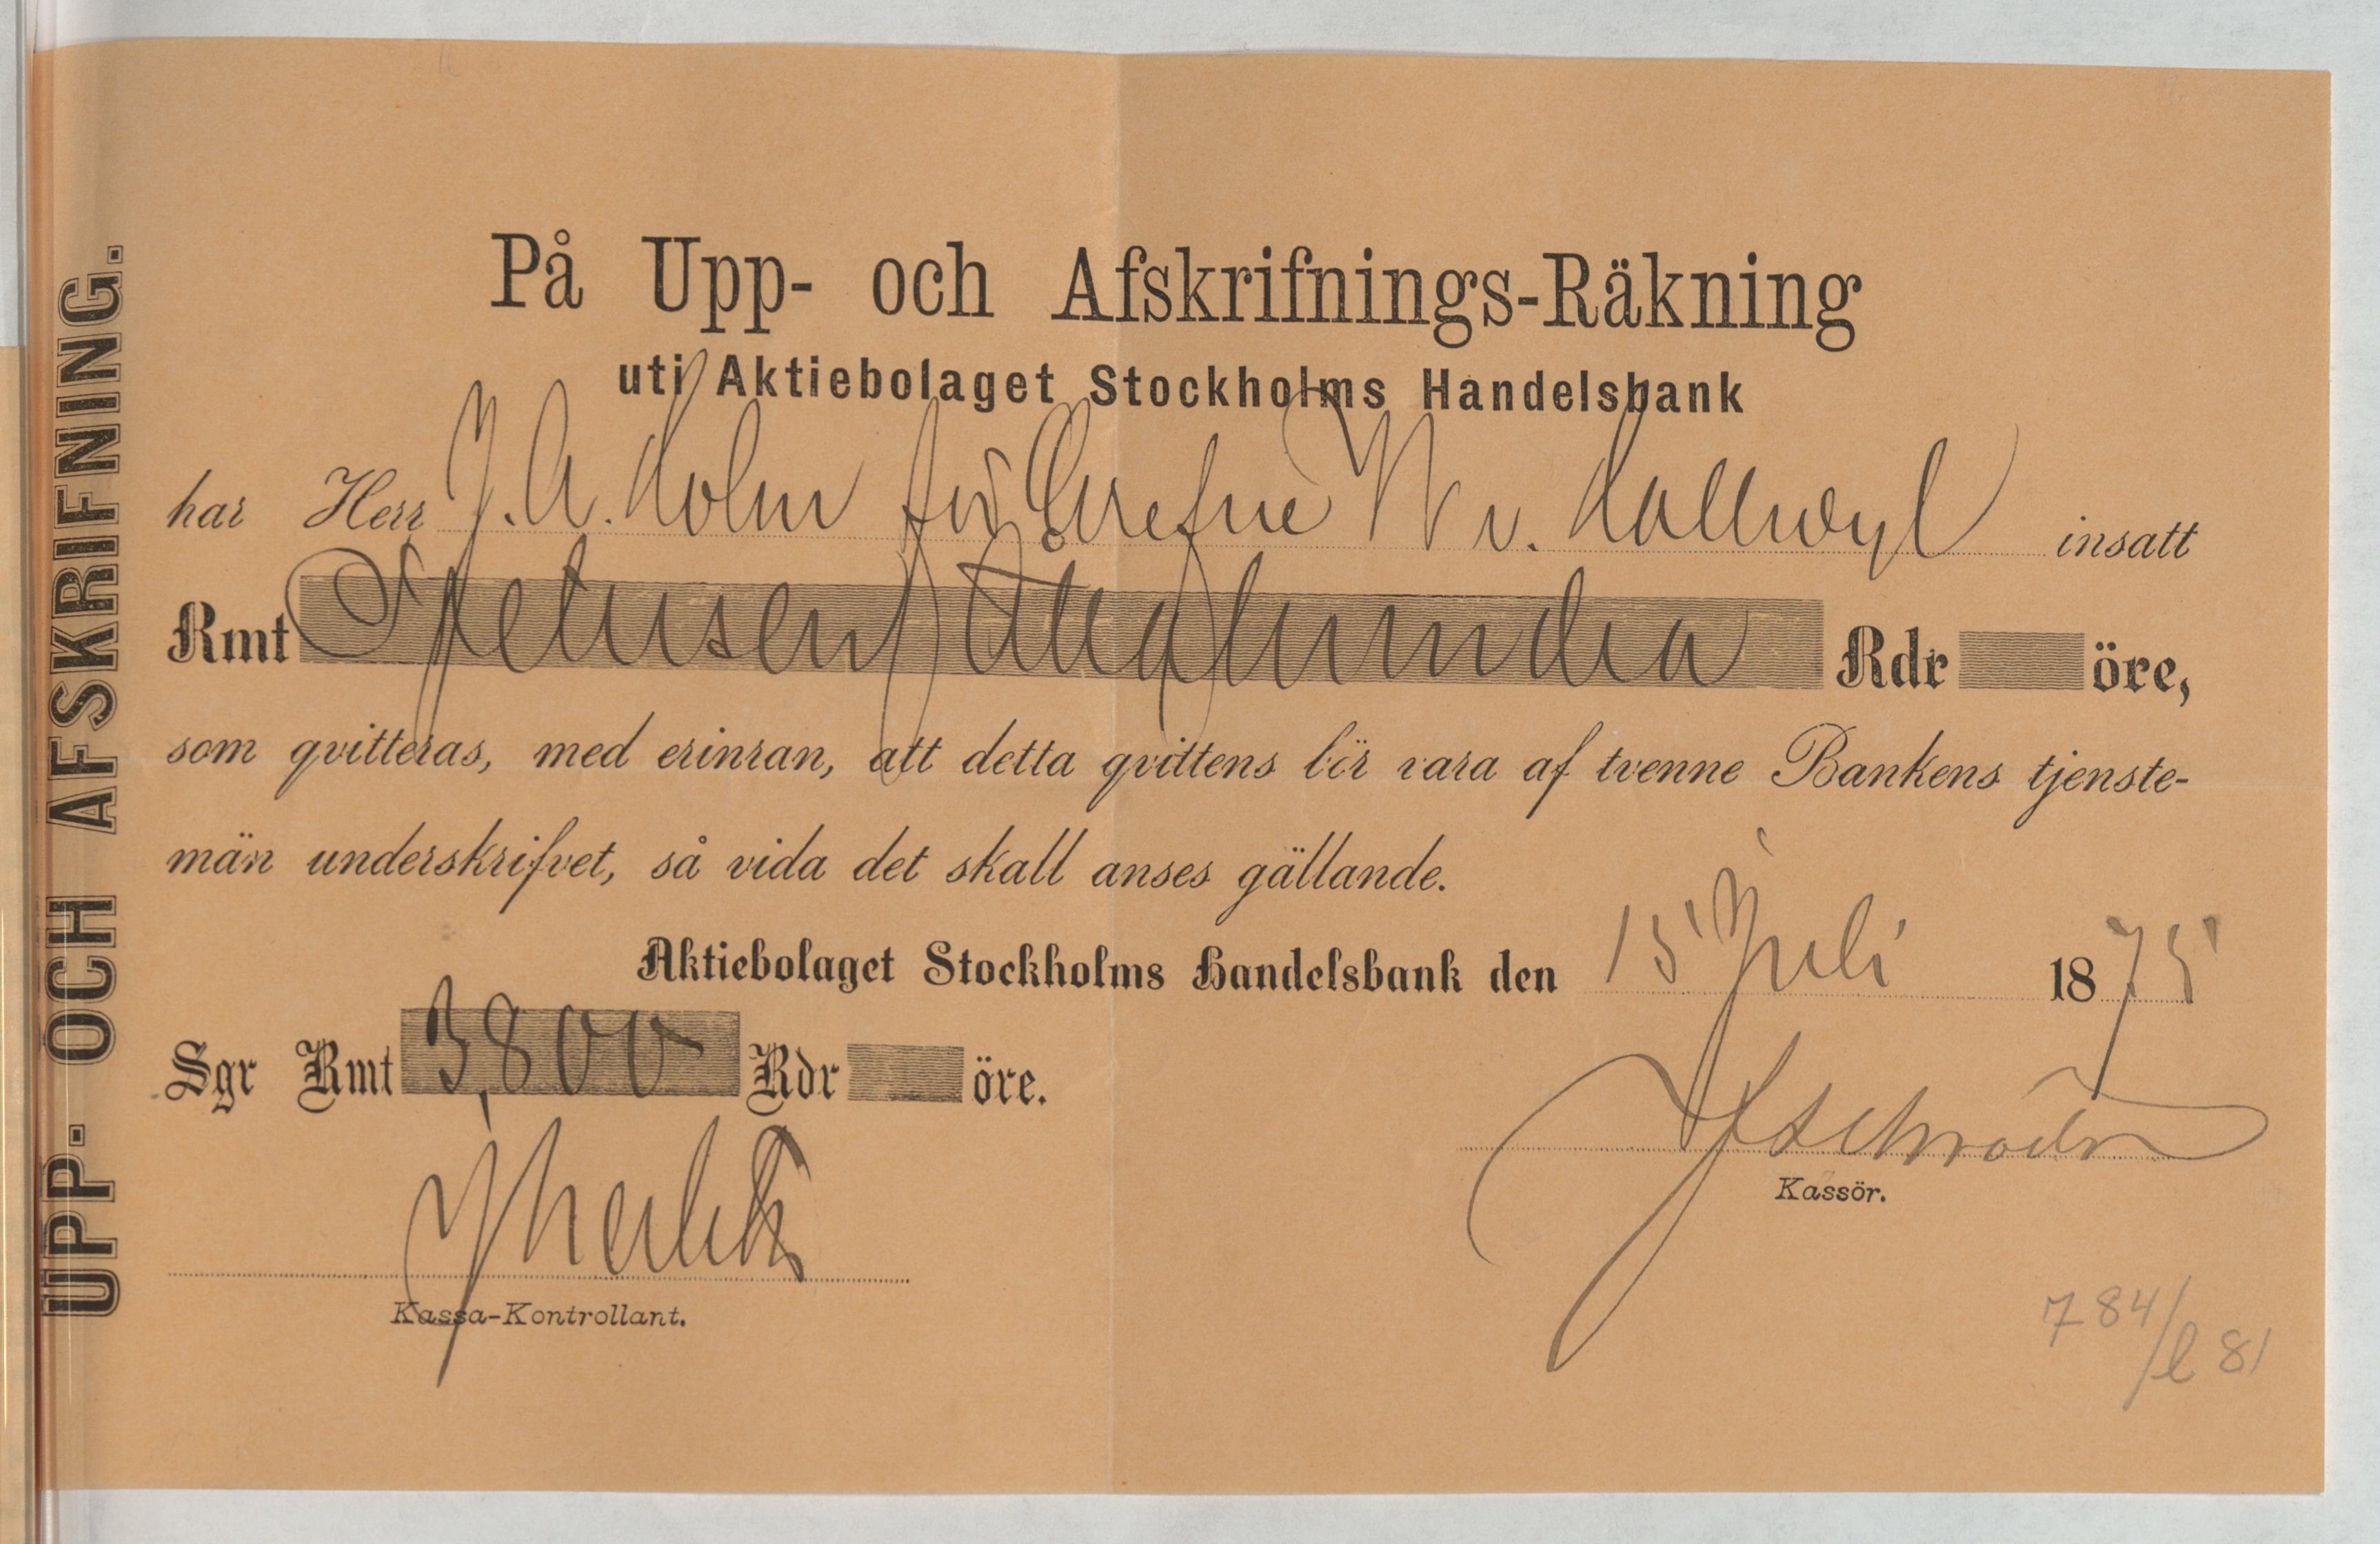 UPP- OCH AFSKRIFNING.
På Upp- och Afskrifnings-Räkning
uti Aktiebolaget Stockholms Handelsbank
har Herr J. A. Holm för Grefve W v. Hallwyl insatt
Rmt Tretusen Åttahundra Rdr öre,
som qvitteras, med erinran, att detta qvittens bör vara af tvenne Bankens tjenste-
män underskrifvet, så vida det skall anses gällande.
Aktiebolaget Stockholms Handelsbank den 15 Juli 1875
Sgr Rmt 3,800 Rdr öre.
Kassör.
Kassa-Kontrollant.
784/l 81